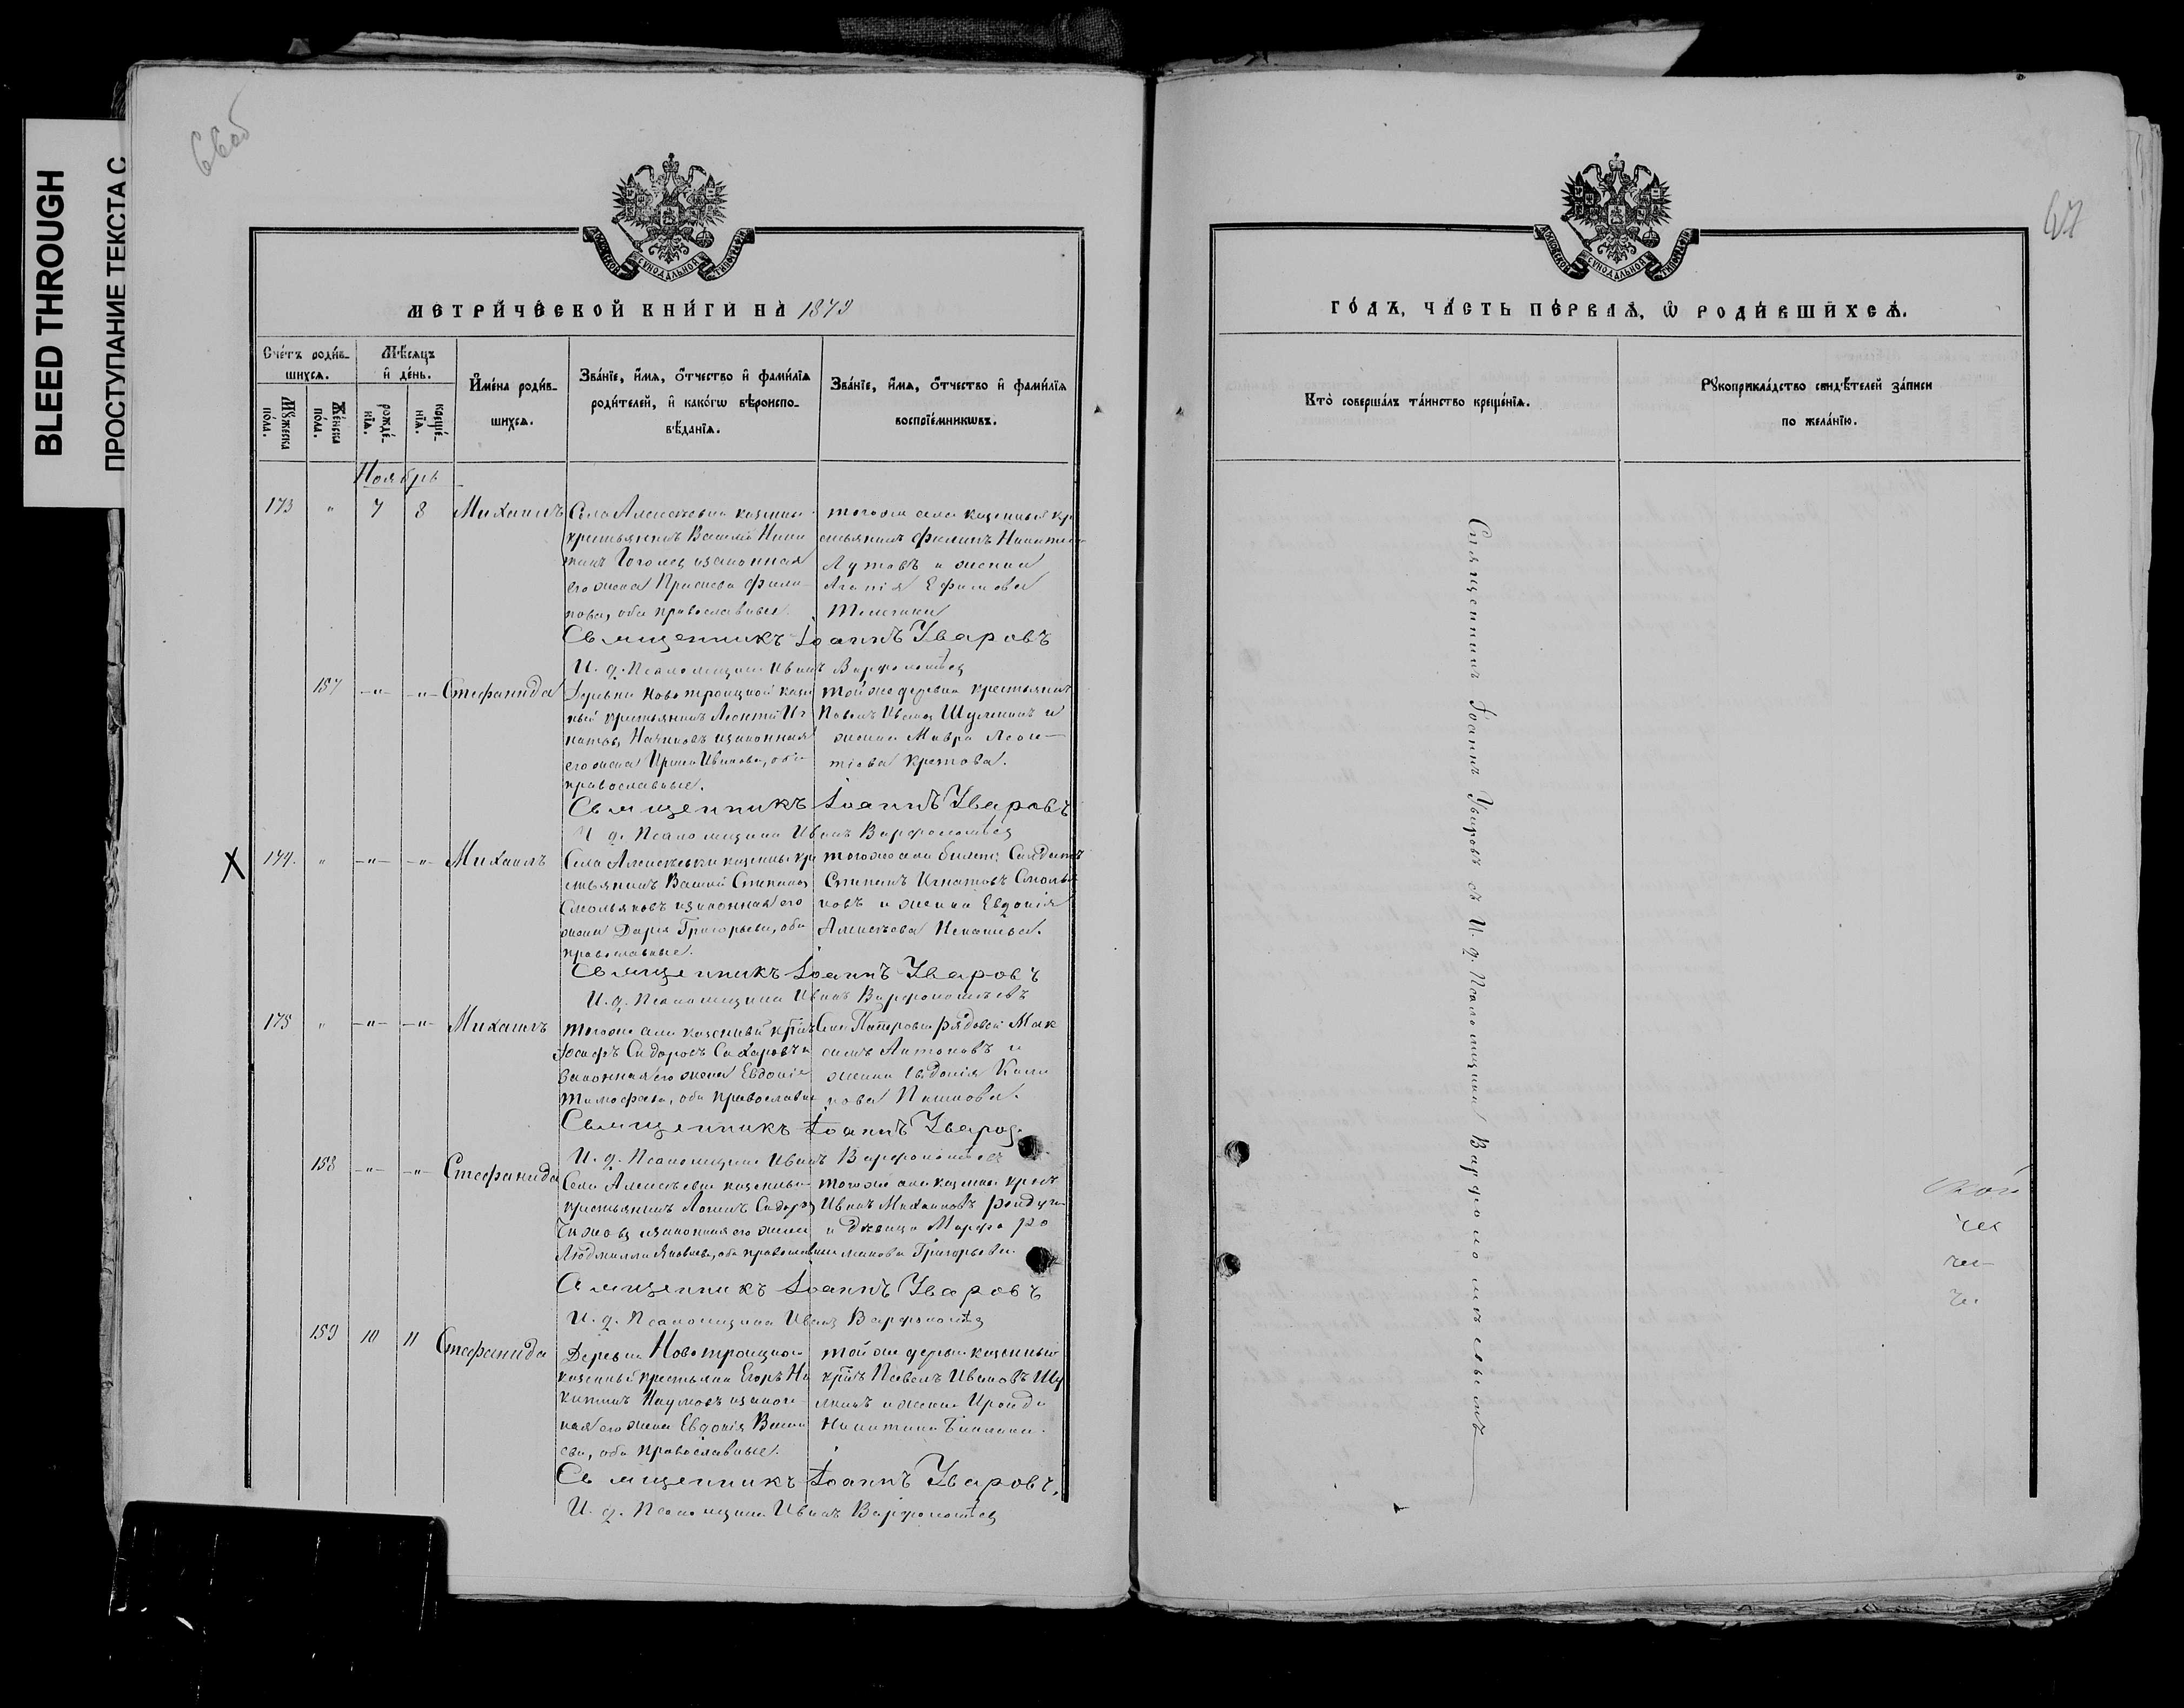 66об
BLEED THROUGH
ПРОСТУПАНИЕ ТЕКСТА С
МОСКОВСКОЙ СѴНОДАЛЬНОЙ ТИПОГРАФІИ
МЕТРИ́ЧЕСКОЙ КНИ́ГИ НА 1879
Сче́тъ роди́в-
шихся.
Мѣ́сяцъ
и҆ де́нь.
И҆мена̀ роди́в-
шихся.
Зва́нїе, и҆́мя, ѻ҆́тчество и҆ фами́лїя
роди́телей, и҆ како́гѡ вѣроиспо-
вѣ́данїя.
Зва́нїе, и҆́мя, ѻ҆́тчество и҆ фами́лїя
воспрїе́мникѡвъ.
Мꙋ́жеска
пола.
Же́нска
пола.
рожде́-
нїя.
креще́-
нїя.
Ноябрь
173 " 7 8 Михаилъ
Села Алексѣевки казенный
крестьянинъ Василій Ники
тинъ Гоголев и законная
его жена Филип
пова, оба православные.
тогоже села казенный кр
стьянинъ Филипъ Никитин
Лутовъ и жена
Агапія Ефимова
Священникъ Іоаннъ Уваровъ
И. д. Псаломщика Иванъ Варфоломѣев
157 -"- -"- Стефанида
Деревни Новотроицкой казен
ный крестьянинъ Леонтій Иг
натов и законная
его жена Ирина Иванова, оба
православные.
тойже деревни крестьянинъ
Павелъ Иванов Шумкинъ и
жена Мавра Леон-
тіева Кретова.
Священникъ Іоаннъ Уваровъ
И д. Псаломщика Иванъ Варфоломѣев
174. " -"- -"- Михаилъ
Села Алексѣевки казенный кре
стьянинъ Василій Степанов
Смольяковъ и законная его
жена Дарья Григорьева, оба
православные.
тогоже села билет. Солдатъ
Степанъ Игнатовъ Смолья
ковъ и жена Евдокія
Алексѣева
Священникъ Іоаннъ Уваровъ
И. д. Псаломщика Иванъ Варфоломѣевъ
175 " -"- -"- Михаилъ
тогоже села казенный кр-нъ
Іосифъ Сидоровъ Сахаровъ и
законная его жена Евдокія
Тимофеева, оба православные
Села рядовой Мак
симъ Антоновъ и
жена Евдокія
пова Пашкова.
Священникъ Іоаннъ Уваров.
И. д. Псаломщика Иванъ Варфоломѣевъ
158 -"- -"- Стефанида
Села Алексѣевки казенный
крестьянинъ Логинъ Сидоров
Чижовъ и законная его жена
Людмилла Яковлева, оба православные
тогоже села казенный крест.
Иванъ Михаиловъ
и дѣвица Марфа Ро
манова Григорьева.
Священникъ Іоаннъ Уваровъ
И. д. Псаломщика Иванъ Варфоломѣев
159 10 11 Стефанида
Деревни Новотроицкой
казенный крестьянин Егоръ Ни
китинъ Наумовъ и закон-
ная его жена Евдокія Васи
ева, оба православные.
тойже деревни казенный
кр-нъ Павелъ Ивановъ Шу
мкинъ и жена Ироида
Никитина
Священникъ Іоаннъ Уваровъ.
И. д. Псаломщика Иванъ Варфоломѣев
67
МОСКОВСКОЙ СѴНОДАЛЬНОЙ ТИПОГРАФІИ
ГО́ДЪ, ЧА́СТЬ ПЕ́РВАЯ, Ѡ҆ РОДИ́ВШИХСЯ.
Кто̀ соверша́лъ та́инство креще́нїя.
Рꙋкоприкла́дство свидѣ́телей за́писи
по жела́нїю.
Священникъ Іоаннъ Уваровъ съ И. д. Псаломщика Варфоломѣевымъ